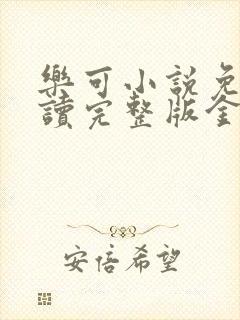 樂可小說免
讀完整版全
安倍希望